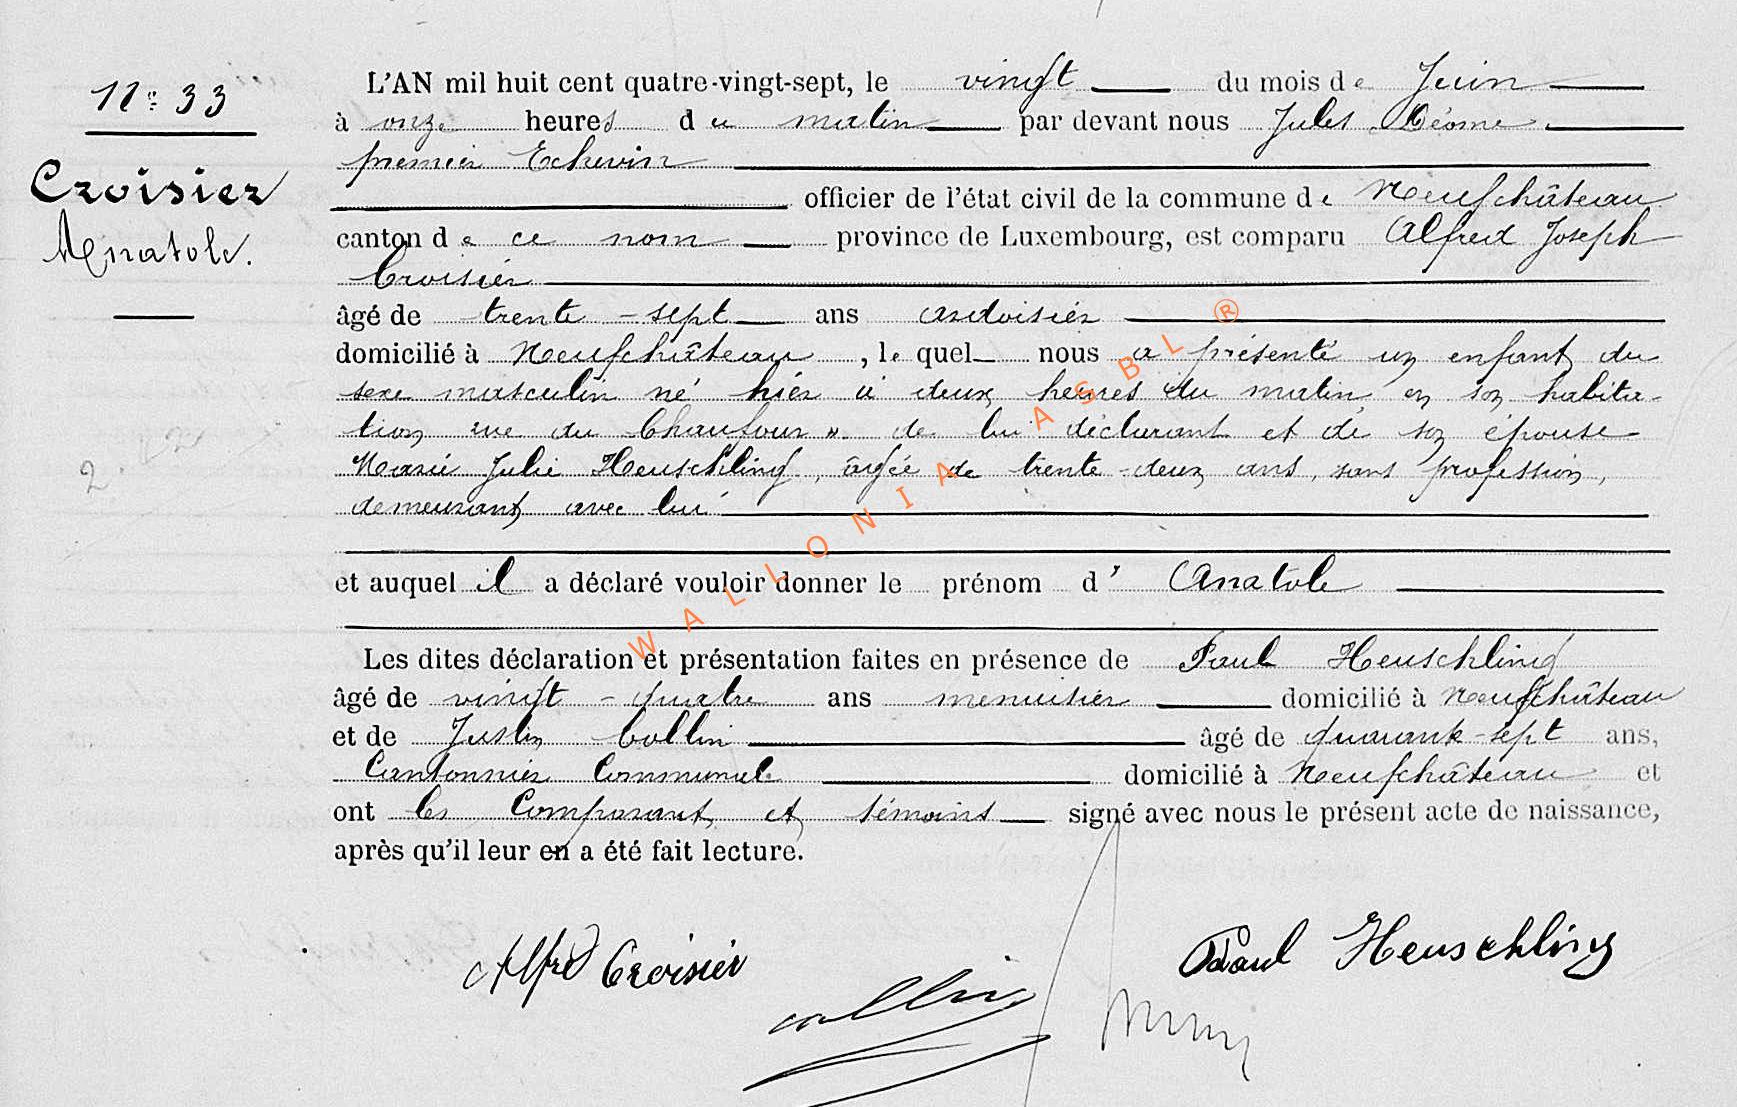 N° 33
Croisier
Anatole.
2
L'AN mil huit cent quatre-vingt-sept, le vingt du mois de Juin
à onze heures du matin par devant nous Jules Déome
premier Echevin
officier de l'état civil de la commune de Neufchâteau
canton de ce nom province de Luxembourg, est comparu Alfred Joseph
Croisier
âgé de trente-sept ans ardoisier
domicilié à Neufchâteau, lequel nous a présenté un enfant du
sexe masculin né hier à deux heures du matin, en son habita-
tion rue du Chaufour ». de lui déclarant et de son épouse
Marie Julie Heuschling, âgée de trente-deux ans, sans profession,
demeurant avec lui
et auquel il a déclaré vouloir donner le prénom d' Anatole
Les dites déclaration et présentation faites en présence de Paul Heuschling
âgé de vingt-quatre ans menuisier domicilié à Neufchâteau
et de Justin Collin âgé de quarante-sept ans,
Cantonnier Communal domicilié à Neufchâteau et
ont les Comparant et témoins signé avec nous le présent acte de naissance,
après qu'il leur en a été fait lecture.
Alfred Croisier
Collin
Paul Heuschling
WALLONIA ASBL ®